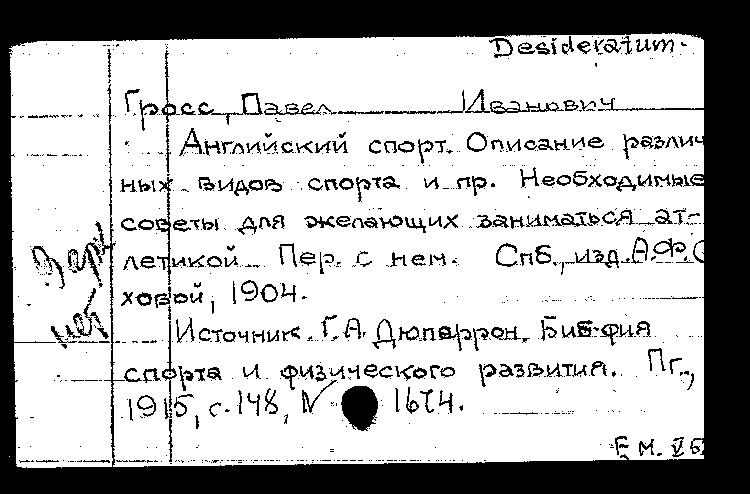 Desideratum.
Гросс, Павел Иванович
Английский спорт. Описание различ
ных видов спорта и пр. Необходимые
советы для желающих заниматься ат-
летикой. Пер. с нем. Спб., изд. А.Ф.С
ховой, 1904.
нет
Источник. Г.А. Дюперрон. Биб-фия
спорта и физического развития. Пг.,
1915, с. 148, № 1674.
Е. М. V 6